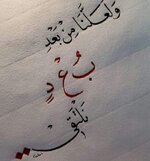 وَلَعَلَّنَا مِنْ بَعْدِ
بُعْدٍ
نَلْتَقِي